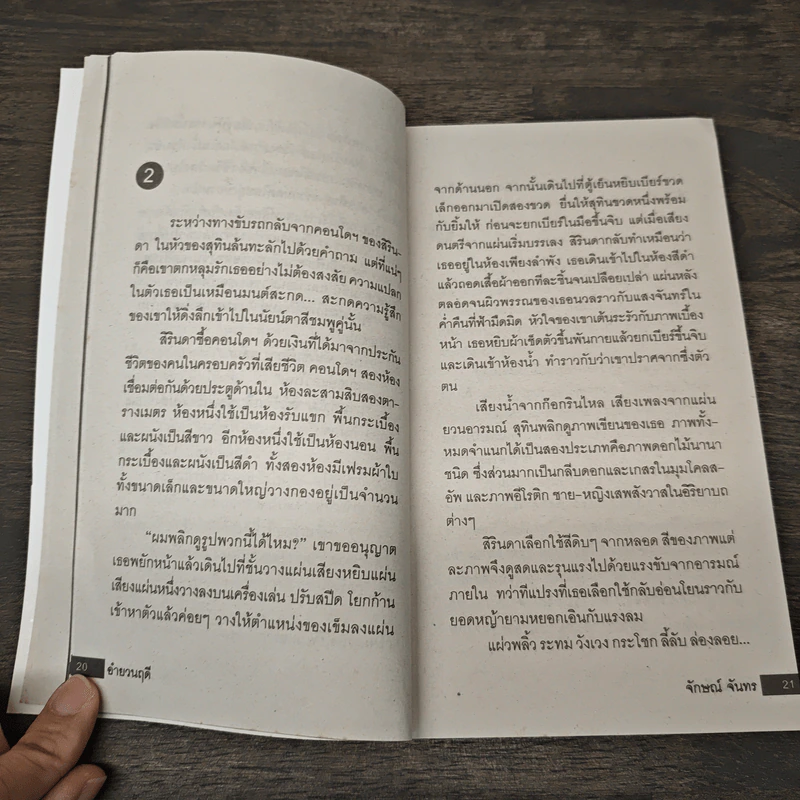 2
ระหว่างทางขับรถกลับจากคอนโดฯ ของสิริน-
ดา ในหัวของสุทินล้นทะลักไปด้วยคำถาม แต่ที่แน่ๆ
ก็คือเขาตกหลุมรักเธออย่างไม่ต้องสงสัย ความแปลก
ในตัวเธอเป็นเหมือนมนต์สะกด... สะกดความรู้สึก
ของเขาให้ดิ่งลึกเข้าไปในนัยน์ตาสีชมพูคู่นั้น
สิรินดาซื้อคอนโดฯ ด้วยเงินที่ได้มาจากประกัน
ชีวิตของคนในครอบครัวที่เสียชีวิต คอนโดฯ สองห้อง
เชื่อมต่อกันด้วยประตูด้านใน ห้องละสามสิบสองตา-
รางเมตร ห้องหนึ่งใช้เป็นห้องรับแขก พื้นกระเบื้อง
และผนังเป็นสีขาว อีกห้องหนึ่งใช้เป็นห้องนอน พื้น
กระเบื้องและผนังเป็นสีดำ ทั้งสองห้องมีเฟรมผ้าใบ
ทั้งขนาดเล็กและขนาดใหญ่วางกองอยู่เป็นจำนวน
มาก
“ผมพลิกดูรูปพวกนี้ได้ไหม?” เขาขออนุญาต
เธอพยักหน้าแล้วเดินไปที่ชั้นวางแผ่นเสียงหยิบแผ่น
เสียงแผ่นหนึ่งวางลงบนเครื่องเล่น ปรับสปีด โยกก้าน
เข้าหาตัวแล้วค่อยๆ วางให้ตำแหน่งของเข็มลงแผ่น
20 อำยวนฤดี
จากด้านนอก จากนั้นเดินไปที่ตู้เย็นหยิบเบียร์ขวด
เล็กออกมาเปิดสองขวด ยื่นให้สุทินขวดหนึ่งพร้อม
กับยิ้มให้ ก่อนจะยกเบียร์ในมือขึ้นจิบ แต่เมื่อเสียง
ดนตรีจากแผ่นเริ่มบรรเลง สิรินดากลับทำเหมือนว่า
เธออยู่ในห้องเพียงลำพัง เธอเดินเข้าไปในห้องสีดำ
แล้วถอดเสื้อผ้าออกทีละชิ้นจนเปลือยเปล่า แผ่นหลัง
ตลอดจนผิวพรรณของเธอนวลราวกับแสงจันทร์ใน
ค่ำคืนที่ฟ้ามืดมิด หัวใจของเขาเต้นระรัวกับภาพเบื้อง
หน้า เธอหยิบผ้าเช็ดตัวขึ้นพันกายแล้วยกเบียร์ขึ้นจิบ
และเดินเข้าห้องน้ำ ทำราวกับว่าเขาปราศจากซึ่งตัว
ตน
เสียงน้ำจากก๊อกรินไหล เสียงเพลงจากแผ่น
ยวนอารมณ์ สุทินพลิกดูภาพเขียนของเธอ ภาพทั้ง-
หมดจำแนกได้เป็นสองประเภทคือภาพดอกไม้นานา
ชนิด ซึ่งส่วนมากเป็นกลีบดอกและเกสรในมุมโคลส-
อัพ และภาพอีโรติก ชาย-หญิงเสพสังวาสในอิริยาบถ
ต่างๆ
สิรินดาเลือกใช้สีดิบๆ จากหลอด สีของภาพแต่
ละภาพจึงดูสดและรุนแรงไปด้วยแรงขับจากอารมณ์
ภายใน ทว่าทีแปรงที่เธอเลือกใช้กลับอ่อนโยนราวกับ
ยอดหญ้ายามหยอกเอินกับแรงลม
แผ่วพลิ้ว ระทม วังเวง กระโชก ลี้ลับ ล่องลอย...
จักษณ์ จันทร 21